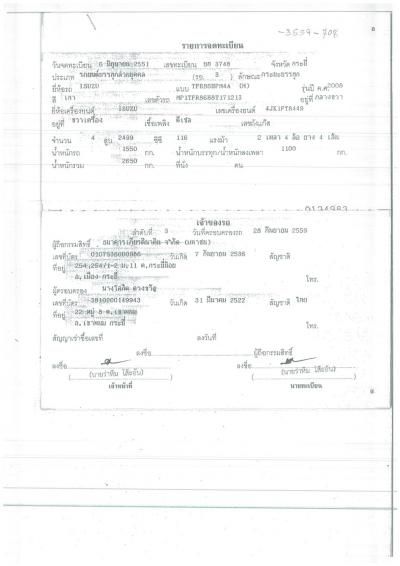 -3559-708
รายการจดทะเบียน
วันจดทะเบียน 6 มิถุนายน 2551 เลขทะเบียน บธ 3748 จังหวัด กระบี่
ประเภท รถยนต์บรรทุกส่วนบุคคล (รย. 3 ) ลักษณะ กระบะบรรทุก
ยี่ห้อรถ ISUZU แบบ รุ่นปี ค.ศ. 2008
สี เทา เลขตัวรถ อยู่ที่ กลางขวา
ยี่ห้อเครื่องยนต์ ISUZU เลขเครื่องยนต์ 4JK1FT8449
อยู่ที่ ขวาเครื่อง เชื้อเพลิง ดีเซล เลขถังแก๊ส
จำนวน 4 สูบ 2499 ซีซี 116 แรงม้า 2 เพลา 4 ล้อ ยาง 4 เส้น
น้ำหนักรถ 1550 กก. น้ำหนักบรรทุก/น้ำหนักลงเพลา 1100 กก.
น้ำหนักรวม 2650 กก. ที่นั่ง คน
เจ้าของรถ
ลำดับที่ 3 วันที่ครอบครองรถ 28 กันยายน 2559
ผู้ถือกรรมสิทธิ์ ธนาคารเกียรตินาคิน จำกัด (มหาชน)
เลขที่บัตร 0107536000986 วันเกิด 7 กันยายน 2536 สัญชาติ
ที่อยู่ 254,254/1-2 ม.11 ต.กระบี่น้อย
อ.เมือง กระบี่ โทร.
ผู้ครอบครอง
เลขที่บัตร 3810000149943 วันเกิด 31 มีนาคม 2522 สัญชาติ ไทย
ที่อยู่ 22 หมู่
กระบี่ โทร.
สัญญาเช่าซื้อเลขที่ ลงวันที่
ลงชื่อ ผู้ถือกรรมสิทธิ์
ลงชื่อ ลงชื่อ
เจ้าหน้าที่ นายทะเบียน